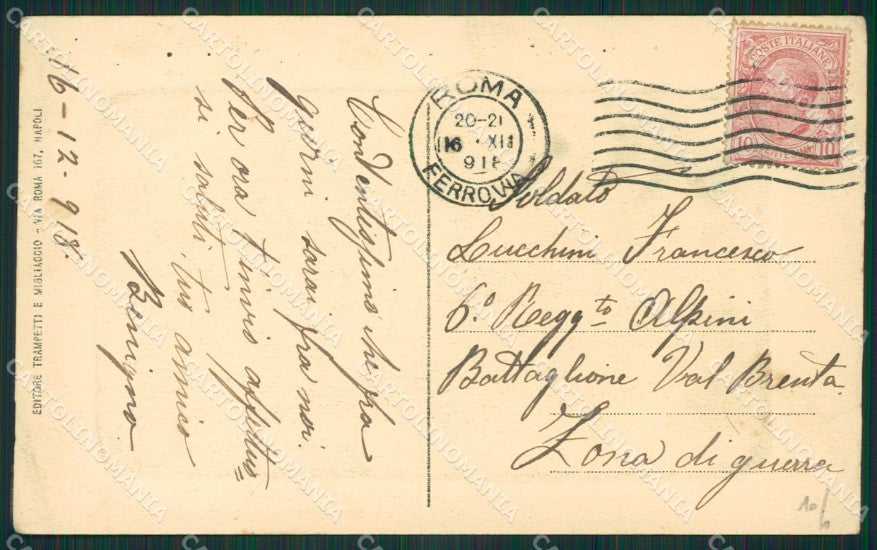 16-12-918.
Contentissimo che fra
giorni sarai fra noi.
Per ora t'invio affettuo=
si saluti. tuo amico
Benigno
Soldato
Lucchini Francesco
6º Regg.to Alpini
Battaglione Val Brenta
Zona di guerra
ROMA
20-21
16 · XII
918
FERROVIA
POSTE ITALIANE
10 10
EDITORE TRAMPETTI E MIGLIACCIO - VIA ROMA 167, NAPOLI
CARTOLINOMANIA